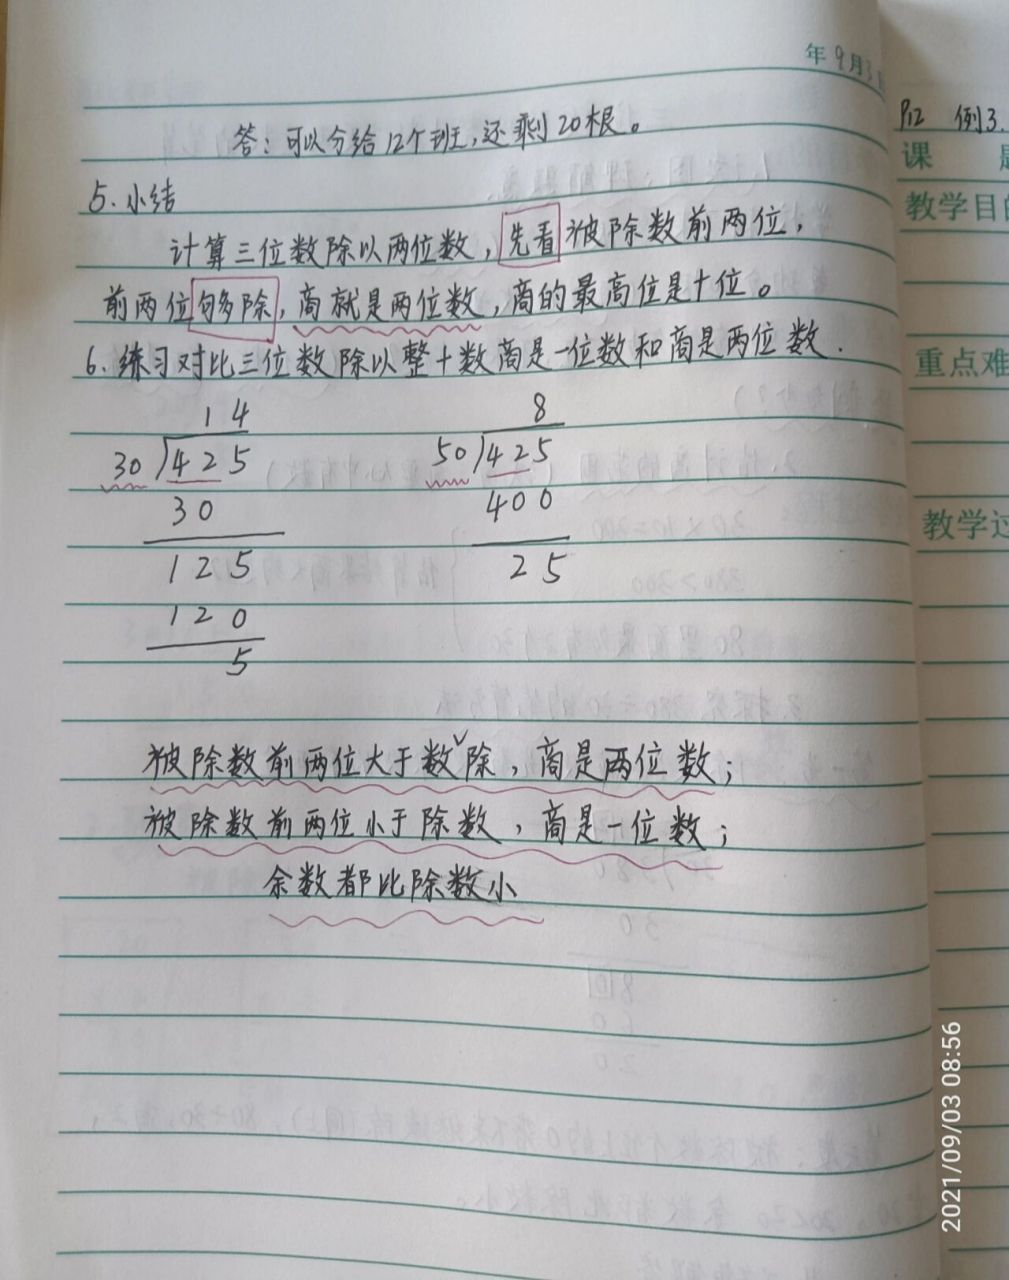 年9月3日
答：可以分给12个班，还剩20根。
5.小结
计算三位数除以两位数，先看被除数前两位，
前两位够除，商就是两位数，商的最高位是十位。
6.练习对比三位数除以整十数商是一位数和商是两位数.
14
30)425
30
125
120
5
8
50)425
400
25
被除数前两位大于数除，商是两位数；
被除数前两位小于除数，商是一位数；
余数都比除数小
P12 例3.
课
教学目的
重点难
教学过
2021/09/03 08:56